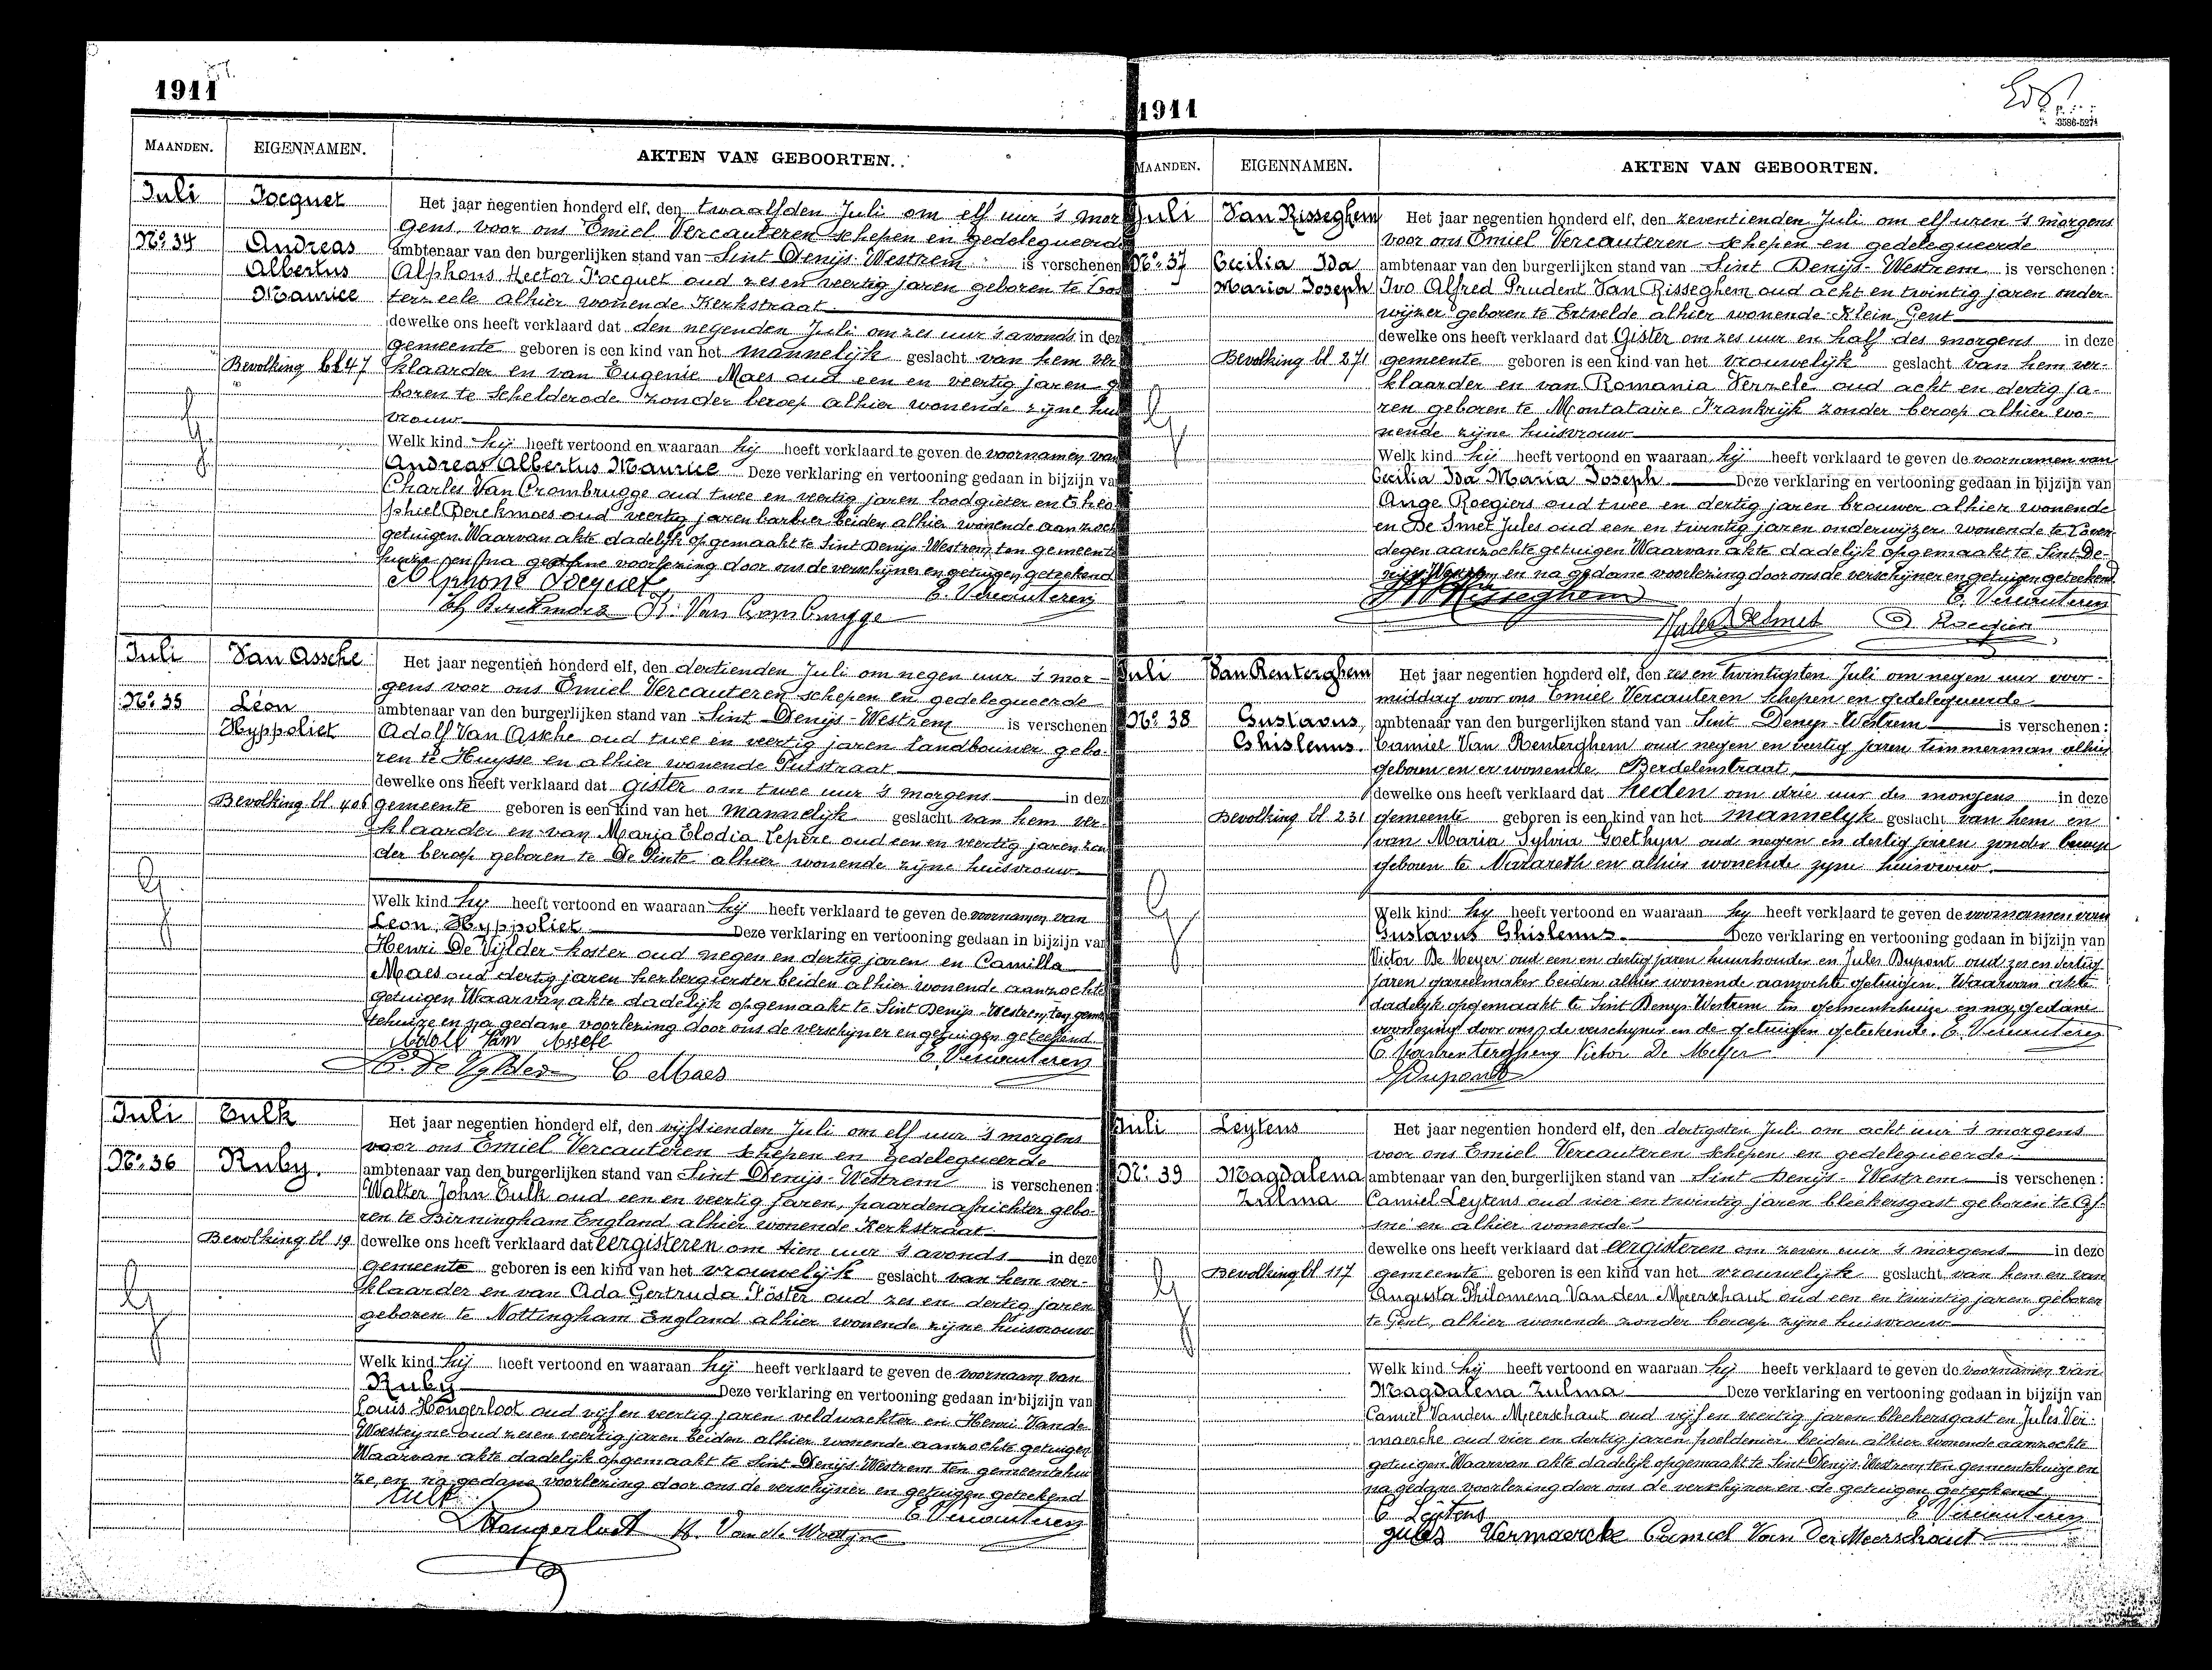 1911
MAANDEN.
EIGENNAMEN.
AKTEN VAN GEBOORTEN.
Juli
Jocquet
Het jaar negentien honderd elf, den twaalfden Juli om elf uur 's mor
gens, voor ons Emiel Vercauteren schepen en gedelegueerd
No 34
Andreas
ambtenaar van den burgerlijken stand van Sint Denijs-Westrem is verschenen
Albertus
Alphons Hector Jocquet oud zes en veertig jaren geboren te
Maurice
terzeele alhier wonende Kerkstraat
dewelke ons heeft verklaard dat den negenden Juli om zes uur 's avonds in deze
gemeente geboren is een kind van het mannelijk geslacht van hem ver
Bevolking bl 47
klaarder en van Eugenie Maes oud een en veertig jaren g
boren te Schelderode zonder beroep alhier wonende zijne hui
vrouw
Welk kind hij heeft vertoond en waaraan hij heeft verklaard te geven de voornamen van
Andreas Albertus Maurice Deze verklaring en vertooning gedaan in bijzijn va
Charles Van Crombrugge oud twee en veertig jaren loodgieter en Theo
phiel Berckmoes oud veertig jaren barbier beiden alhier wonende aanzoch
getuigen. Waarvan akte dadelijk opgemaakt te Sint Denijs-Westrem, ten gemeente
huize en na gedane voorlezing door ons de verschijner en getuigen geteekend
Alphonse Jocquet
E. Vercauteren
K. Van Crombrugge
Juli
Van Assche
Het jaar negentien honderd elf, den dertienden Juli om negen uur 's mor-
gens voor ons Emiel Vercauteren schepen en gedelegueerde
No 35
Léon
ambtenaar van den burgerlijken stand van Sint Denijs-Westrem is verschenen
Hyppoliet
Adolf Van Assche oud twee en veertig jaren landbouwer gebo-
ren te Huysse en alhier wonende Putstraat
dewelke ons heeft verklaard dat gister om twee uur 's morgens in deze
Bevolking bl. 406
gemeente geboren is een kind van het mannelijk geslacht van hem ver-
klaarder en van Maria Elodia Lepère oud een en veertig jaren zon
der beroep geboren te De Pinte alhier wonende zijne huisvrouw.
Welk kind hij heeft vertoond en waaraan hij heeft verklaard te geven de voornamen van
Leon, Hyppoliet Deze verklaring en vertooning gedaan in bijzijn van
Henri De Vijlder koster oud negen en dertig jaren en Camilla
Maes oud dertig jaren herbergierster beiden alhier wonende aanzochte
getuigen Waarvan akte dadelijk opgemaakt te Sint Denijs-Westrem, ten geme
tehuize en na gedane voorlezing door ons de verschijner en getuigen geteekend.
Adolf Van Assche
E. Vercauteren
H. De Vylder C Maes
Juli
Tulk
Het jaar negentien honderd elf, den vijftienden Juli om elf uur 's morgens
voor ons Emiel Vercauteren schepen en gedelegueerde
No 36
Ruby.
ambtenaar van den burgerlijken stand van Sint Denijs-Westrem is verschenen:
Walter John Tulk oud een en veertig jaren, paardenafrichter gebo-
ren te Birningham England alhier wonende Kerkstraat
Bevolking bl 19
dewelke ons heeft verklaard dat eergisteren om tien uur 's avonds in deze
gemeente geboren is een kind van het vrouwelijk geslacht van hem ver-
klaarder en van Ada Gertruda Föster oud zes en dertig jaren
geboren te Nottingham England alhier wonende zijne huisvrouw
Welk kind hij heeft vertoond en waaraan hij heeft verklaard te geven de voornaam van
Ruby Deze verklaring en vertooning gedaan in bijzijn van
Louis Hongerloot oud vijf en veertig jaren veldwachter en Henri Van de
Woestijne oud zes en veertig jaren beiden alhier wonende aanzochte getuigen
Waarvan akte dadelijk opgemaakt te Sint Denijs-Westrem ten gemeentehui
ze, en na gedane voorlezing door ons de verschijner en getuigen geteekend
Tulk
E Vercauteren
L Hongerloot H. Van de Woestyne
1911
3586-5274
MAANDEN.
EIGENNAMEN.
AKTEN VAN GEBOORTEN.
Juli
Van Risseghem
Het jaar negentien honderd elf, den zeventienden Juli om elf uren 's morgens
voor ons Emiel Vercauteren schepen en gedelegueerde
No 37
Cecilia Ida
ambtenaar van den burgerlijken stand van Sint Denijs-Westrem is verschenen:
Maria Joseph
Ivo Alfred Prudent Van Risseghem oud acht en twintig jaren onder-
wijzer geboren te Ertvelde alhier wonende Klein Gent
dewelke ons heeft verklaard dat Gister om zes uur en half des morgens in deze
Bevolking bl. 271
gemeente geboren is een kind van het vrouwelijk geslacht van hem ver-
klaarder en van Romania Verzele oud acht en dertig ja-
ren geboren te Montataire Frankrijk zonder beroep alhier wo-
nende zijne huisvrouw
Welk kind hij heeft vertoond en waaraan hij heeft verklaard te geven de voornamen van
Cecilia Ida Maria Joseph Deze verklaring en vertooning gedaan in bijzijn van
Ange Roegiers oud twee en dertig jaren brouwer alhier wonende
en De Smet Jules oud een en twintig jaren onderwijzer wonende te Loven-
degen aanzochte getuigen Waarvan akte dadelijk opgemaakt te Sint De-
nijs Westrem en na gedane voorlezing door ons de verschijner en getuigen geteekend.
Risseghem
E. Vercauteren
Jules Desmet
Juli
Van Renterghem
Het jaar negentien honderd elf, den zes en twintigsten Juli om negen uur voor-
middag voor ons Emiel Vercauteren Schepen en gedelegueerde
No 38
Gustavus,
ambtenaar van den burgerlijken stand van Sint Denys-Westrem is verschenen:
Ghislenus.
Camiel Van Renterghem oud negen en veertig jaren timmerman alhier
geboren en er wonende Berdelenstraat,
dewelke ons heeft verklaard dat heden om drie uur des morgens in deze
Bevolking bl 231
gemeente geboren is een kind van het mannelyk geslacht van hem en
van Maria Sylvia Goethyn oud negen en dertig jaren zonder beroep
geboren te Nazareth en alhier wonende zyne huisvrouw.
Welk kind hy heeft vertoond en waaraan hy heeft verklaard te geven de voornamen van
Gustavus Ghislenus. Deze verklaring en vertooning gedaan in bijzijn van
Victor De Meyer oud een en dertig jaren huurhouder en Jules Dupont oud zes en dertig
jaren gareelmaker beiden alhier wonende aanzochte getuigen. Waarvan akte
dadelyk opgemaakt te Sint Denys-Westrem ten gemeentehuize en na gedane
voorlezing door ons, de verschyner en de getuigen geteekend. E Vercauteren
C Vanrenterghem Victor De Meyer
Dupont
Juli
Leytens
Het jaar negentien honderd elf, den dertigsten Juli om acht uur 's morgens
voor ons Emiel Vercauteren schepen en gedelegueerde
No: 39
Magdalena
ambtenaar van den burgerlijken stand van Sint Denijs-Westrem is verschenen:
Zulma
Camiel Leytens oud vier en twintig jaren bleekersgast geboren te Af-
sné en alhier wonende
dewelke ons heeft verklaard dat eergisteren om zeven uur 's morgens in deze
Bevolking bl 117
gemeente geboren is een kind van het vrouwelijk geslacht van hem en van
Augusta Philomena Van den Meerschaut oud een en twintig jaren geboren
te Gent, alhier wonende zonder beroep zijne huisvrouw
Welk kind hij heeft vertoond en waaraan hij heeft verklaard te geven de voornamen van
Magdalena Zulma Deze verklaring en vertooning gedaan in bijzijn van
Camiel Vanden Meerschaut oud vijf en veertig jaren bleekersgast en Jules Ver-
maercke oud vier en dertig jaren poeldenier beiden alhier wonende aanzochte
getuigen Waarvan akte dadelijk opgemaakt te Sint Denijs-Westrem, ten gemeentehuize en
na gedane voorlezing door ons de verschijner en de getuigen geteekend
C Leÿtens
E Vercauteren
jules Vermaercke Camiel Van Den Meerschaut